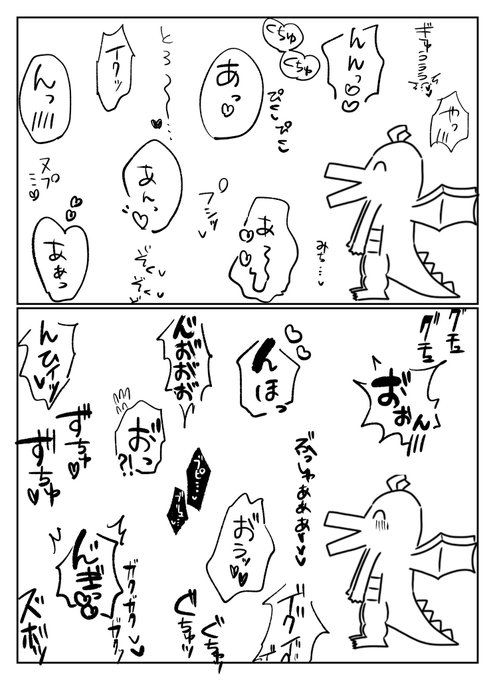 ぎゅうううう〜
やっ
んんっ
ぐちゅ
ぐちゅ
ぴく
ぴく
あっ
とろ〜〜…
イクッ
んっ
みち…
あ〜〜
プシッ
あんっ
ぞく
ぞく
ヌプ…
あぁっ
グチュ
グチュ
お゛ぉん
んほっ
ん゛お゛お゛お゛
んひィッ
お゛っ
?!
ずちゅ
ずちゅ
ぶっしゅあぁあぁ〜
お゛うッ
ん゛ぎっ
ガクガク
ガクッ
ぐちゅッ
ぐちゅッ
ズボッ